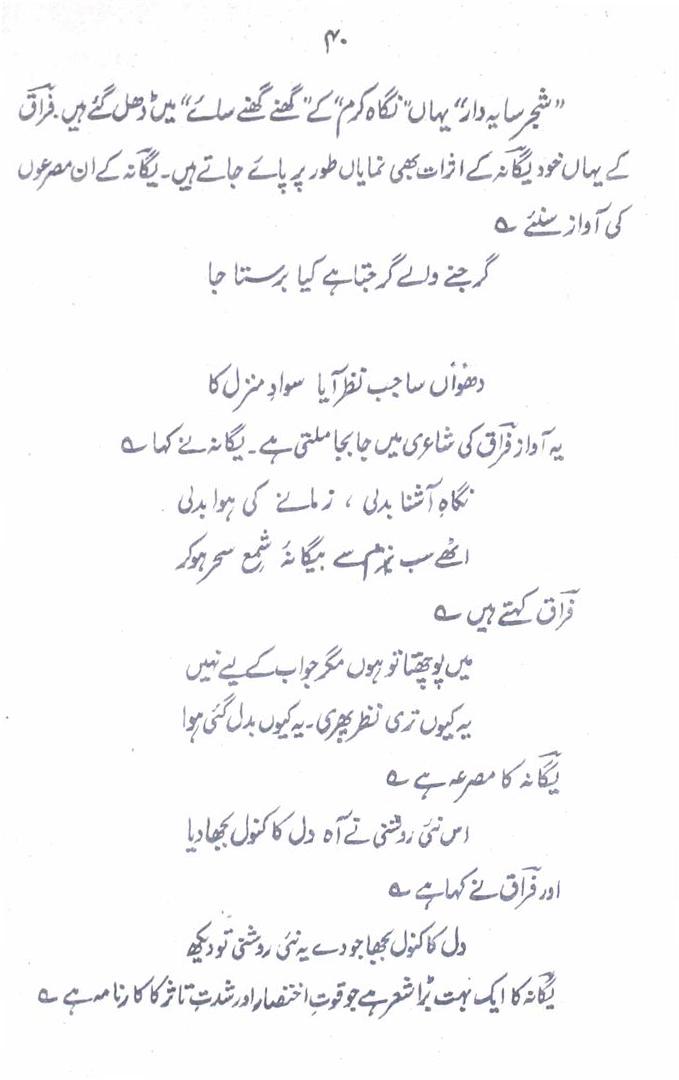 ۴۰
”شجر سایہ دار“ یہاں ”نگاہ کرم“ کے ”گھنے گھنے سائے“ میں ڈھل گئے ہیں۔ فراقؔ
کے یہاں خود یگانہؔ کے اثرات بھی نمایاں طور پر پائے جاتے ہیں۔ یگانہؔ کے ان مصرعوں
کی آواز سنئے ؎
گرجنے والے گرجتا ہے کیا برستا جا
دھوُاں سا جب نظر آیا سوادِ منزل کا
یہ آواز فراقؔ کی شاعری میں جا بجا ملتی ہے۔ یگانہؔ نے کہا ؎
نگاہِ آشنا بدلی ، زمانے کی ہوا بدلی
اٹھے سب بزم سے بیگانۂ شمعِ سحر ہو کر
فراقؔ کہتے ہیں ؎
میں پوچھتا تو ہوں مگر جواب کے لیے نہیں
یہ کیوں تری نظر پھری۔ یہ کیوں بدل گئی ہوا
یگانہؔ کا مصرعہ ہے ؎
اس نئی روشنی نے آہ دل کا کنول بجھا دیا
اور فراقؔ نے کہا ہے ؎
دل کا کنول بجھا جو دے یہ نئی روشنی تو دیکھ
یگانہؔ کا ایک بہت بڑا شعر ہے جو قوتِ اختصار اور شدتِ تاثر کا کارنامہ ہے ؎